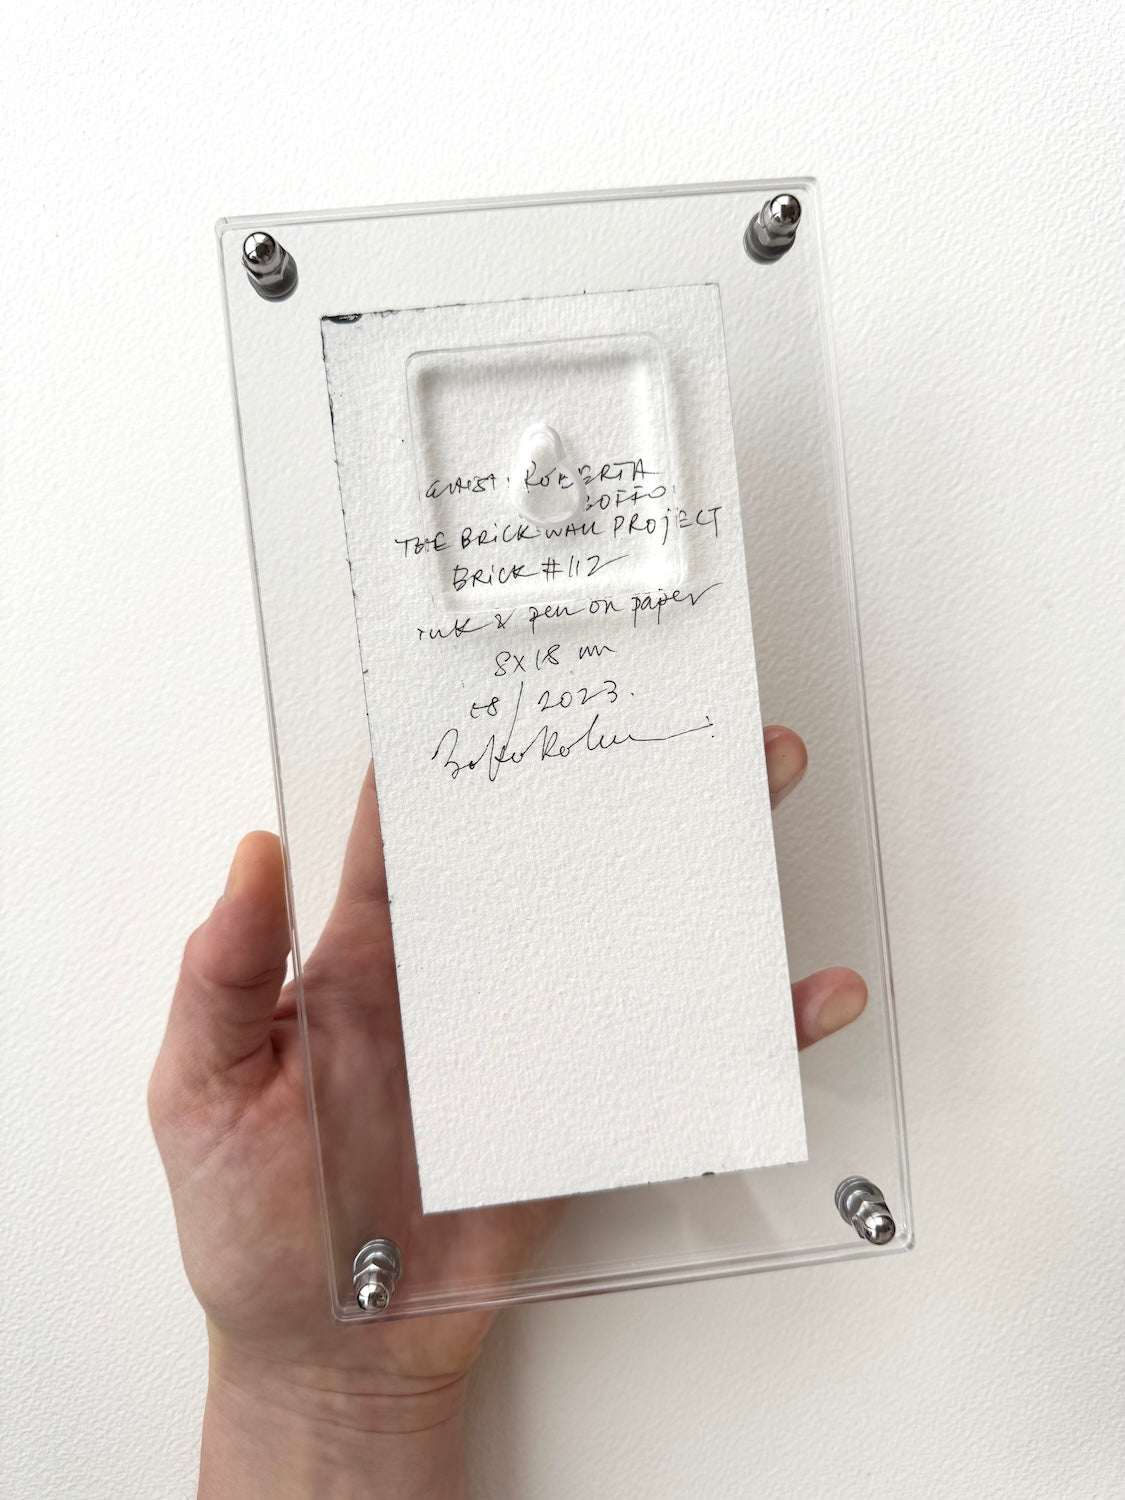 ROBERTA
BOFFO
THE BRICK WALL PROJECT
BRICK #112
ink & pen on paper
8X18 cm
08/2023.